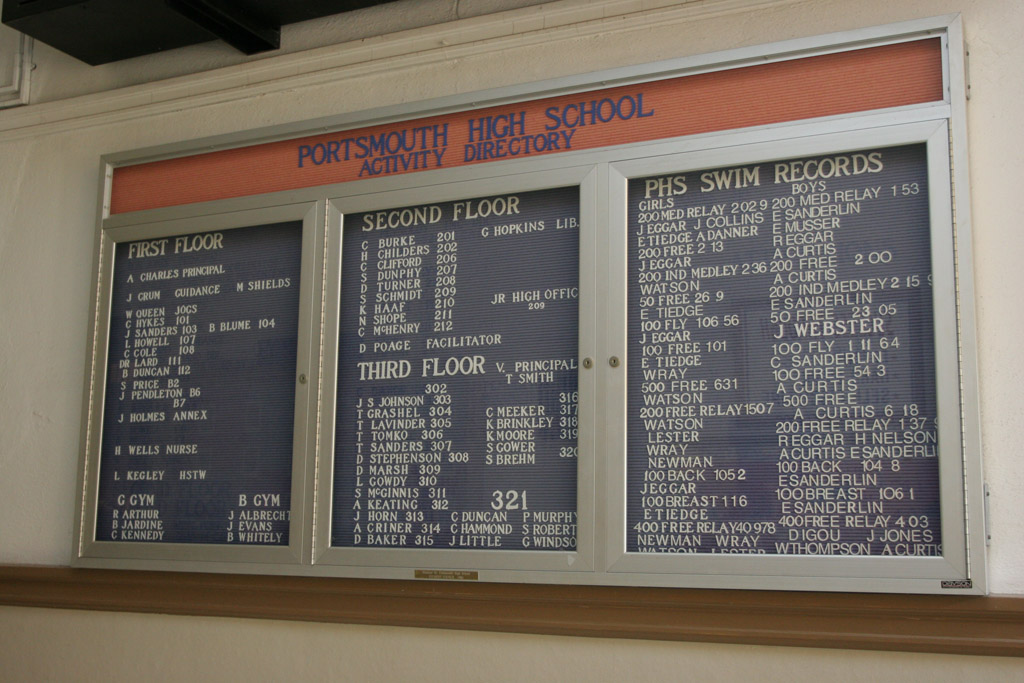 PORTSMOUTH HIGH SCHOOL
ACTIVITY DIRECTORY
FIRST FLOOR
A CHARLES PRINCIPAL
J CRUM GUIDANCE M SHIELDS
W QUEEN JOGS
C HYKES 101
J SANDERS 103 B BLUME 104
L HOWELL 107
C COLE 108
DR LARD 111
B DUNCAN 112
S PRICE B2
J PENDLETON B6
B7
J HOLMES ANNEX
H WELLS NURSE
L KEGLEY HSTW
G GYM B GYM
R ARTHUR J ALBRECHT
B JARDINE J EVANS
C KENNEDY B WHITELY
SECOND FLOOR
C BURKE 201 G HOPKINS LIB.
H CHILDERS 202
C CLIFFORD 206
S DUNPHY 207
D TURNER 208
S SCHMIDT 209 JR HIGH OFFIC
K HAAF 210 209
N SHOPE 211
C MCHENRY 212
D POAGE FACILITATOR
THIRD FLOOR V. PRINCIPAL
T SMITH
302 316
J S JOHNSON 303 C MEEKER 317
T GRASHEL 304 K BRINKLEY 318
T LAVINDER 305 K MOORE 319
T TOMKO 306 S GOWER 320
T SANDERS 307 S BREHM
D STEPHENSON 308
D MARSH 309
L GOWDY 310
S MCGINNIS 311 321
A KEATING 312
J HORN 313 C DUNCAN P MURPHY
A CRINER 314 C HAMMOND S ROBERT
D BAKER 315 J LITTLE G WINDSO
PHS SWIM RECORDS
GIRLS
200 MED RELAY 202 9
J EGGAR J COLLINS
E TIEDGE A DANNER
200 FREE 2 13
J EGGAR
200 IND MEDLEY 2 36
WATSON
50 FREE 26 9
E TIEDGE
100 FLY 106 56
J EGGAR
100 FREE 101
E TIEDGE
WRAY
500 FREE 631
WATSON
200 FREE RELAY 1507
WATSON
LESTER
WRAY
NEWMAN
100 BACK 105 2
J EGGAR
100 BREAST 116
E TIEDGE
400 FREE RELAY 40 978
NEWMAN WRAY
WATSON LESTER
BOYS
200 MED RELAY 1 53
E SANDERLIN
E MUSSER
R EGGAR
A CURTIS
200 FREE 2 00
A CURTIS
200 IND MEDLEY 2 15 9
E SANDERLIN
50 FREE 23 05
J WEBSTER
100 FLY 1 11 64
C SANDERLIN
100 FREE 54 3
A CURTIS
500 FREE
A CURTIS 6 18
200 FREE RELAY 1 37
R EGGAR H NELSON
A CURTIS E SANDERLIN
100 BACK 104 8
E SANDERLIN
100 BREAST 106 1
E SANDERLIN
400 FREE RELAY 4 03
D IGOU J JONES
W THOMPSON A CURTIS